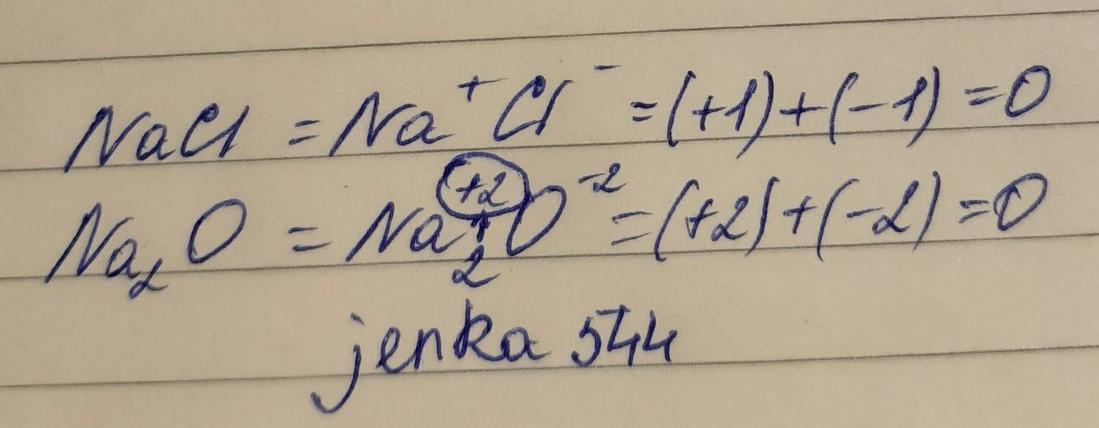 NaCl = Na⁺Cl⁻ = (+1)+(-1) = 0
Na₂O = Na₂⁺ (+2) O⁻² = (+2)+(-2) = 0
jenka 544